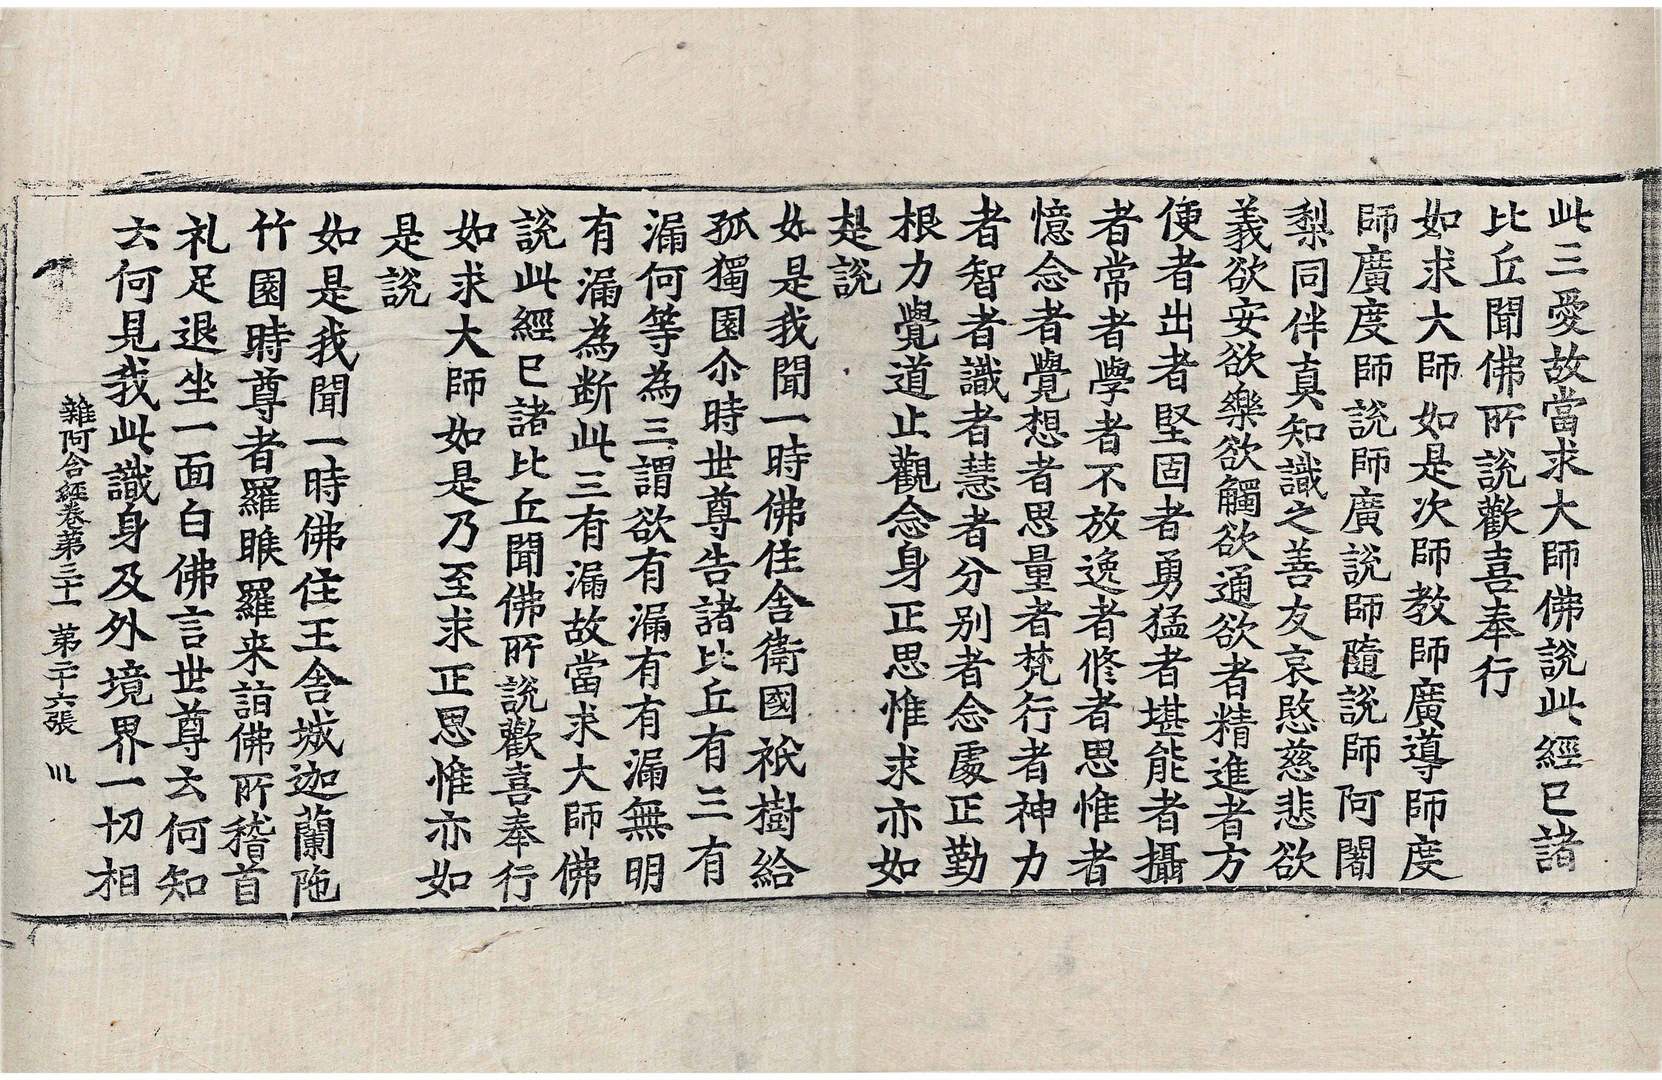 此三愛故當求大師佛說此經已諸
比丘聞佛所說歡喜奉行
如求大師如是次師教師廣導師度
師廣度師說師廣說師隨說師阿闍
梨同伴真知識之善友哀愍慈悲欲
義欲安欲樂欲觸欲通欲者精進者方
便者出者堅固者勇猛者堪能者攝
者常者學者不放逸者修者思惟者
憶念者覺想者思量者梵行者神力
者智者識者慧者分別者念處正勤
根力覺道止觀念身正思惟求亦如
是說
如是我聞一時佛住舍衛國祇樹給
孤獨園尒時世尊告諸比丘有三有
漏何等為三謂欲有漏有有漏無明
有漏為断此三有漏故當求大師佛
說此經已諸比丘聞佛所說歡喜奉行
如求大師如是乃至求正思惟亦如
是說
如是我聞一時佛住王舍城迦蘭陁
竹園時尊者羅睺羅来詣佛所稽首
礼足退坐一面白佛言世尊云何知
云何見我此識身及外境界一切相
雜阿含經卷第三十一 第二十六張